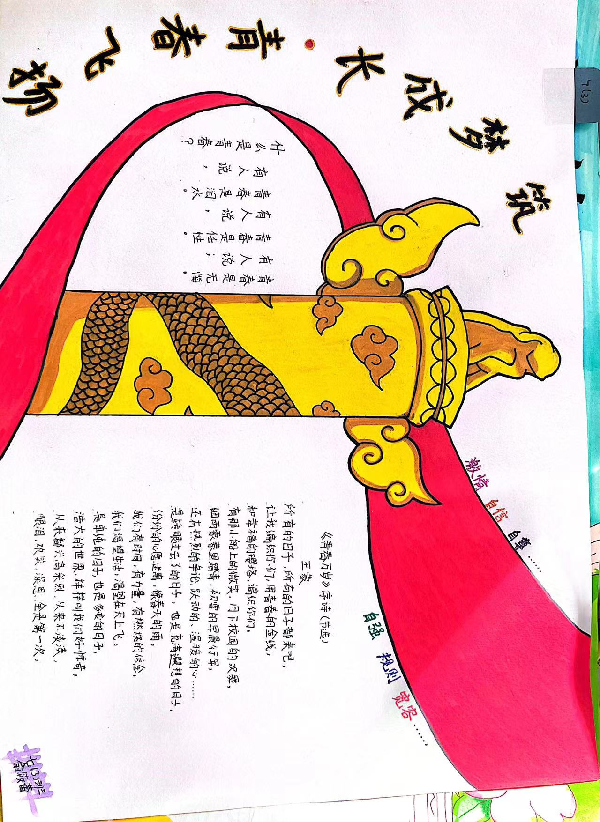 筑梦成长·青春飞扬
7(3)
什么是青春？
有人说，
青春是泪水。
有人说，
青春是任性；
有人说
青春是无悔。
激情 自信 自尊……
自强 规则 宽容……
《青春万岁》序诗（节选）
王蒙
所有的日子，所有的日子都来吧，
让我编织你们，用青春的金线，
和幸福的璎珞，编织你们。
有那小船上的歌笑，月下校园的欢舞，
细雨蒙蒙里踏青，初雪的早晨行军，
还有热烈的争论，跃动的、温暖的心……
是转眼过去了的日子，也是充满遐想的日子，
纷纷的心愿迷离，像春天的雨，
我们有时间，有力量，有燃烧的信念，
我们渴望生活，渴望在天上飞。
是单纯的日子，也是多变的日子，
浩大的世界，样样叫我们好惊奇，
从来都兴高采烈，从来不淡漠，
眼泪，欢笑，深思，全是第一次。